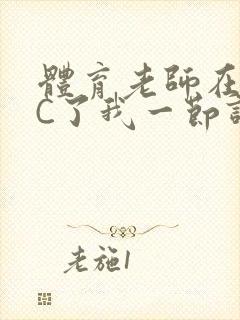 體育老師在
C了我一節
老施1